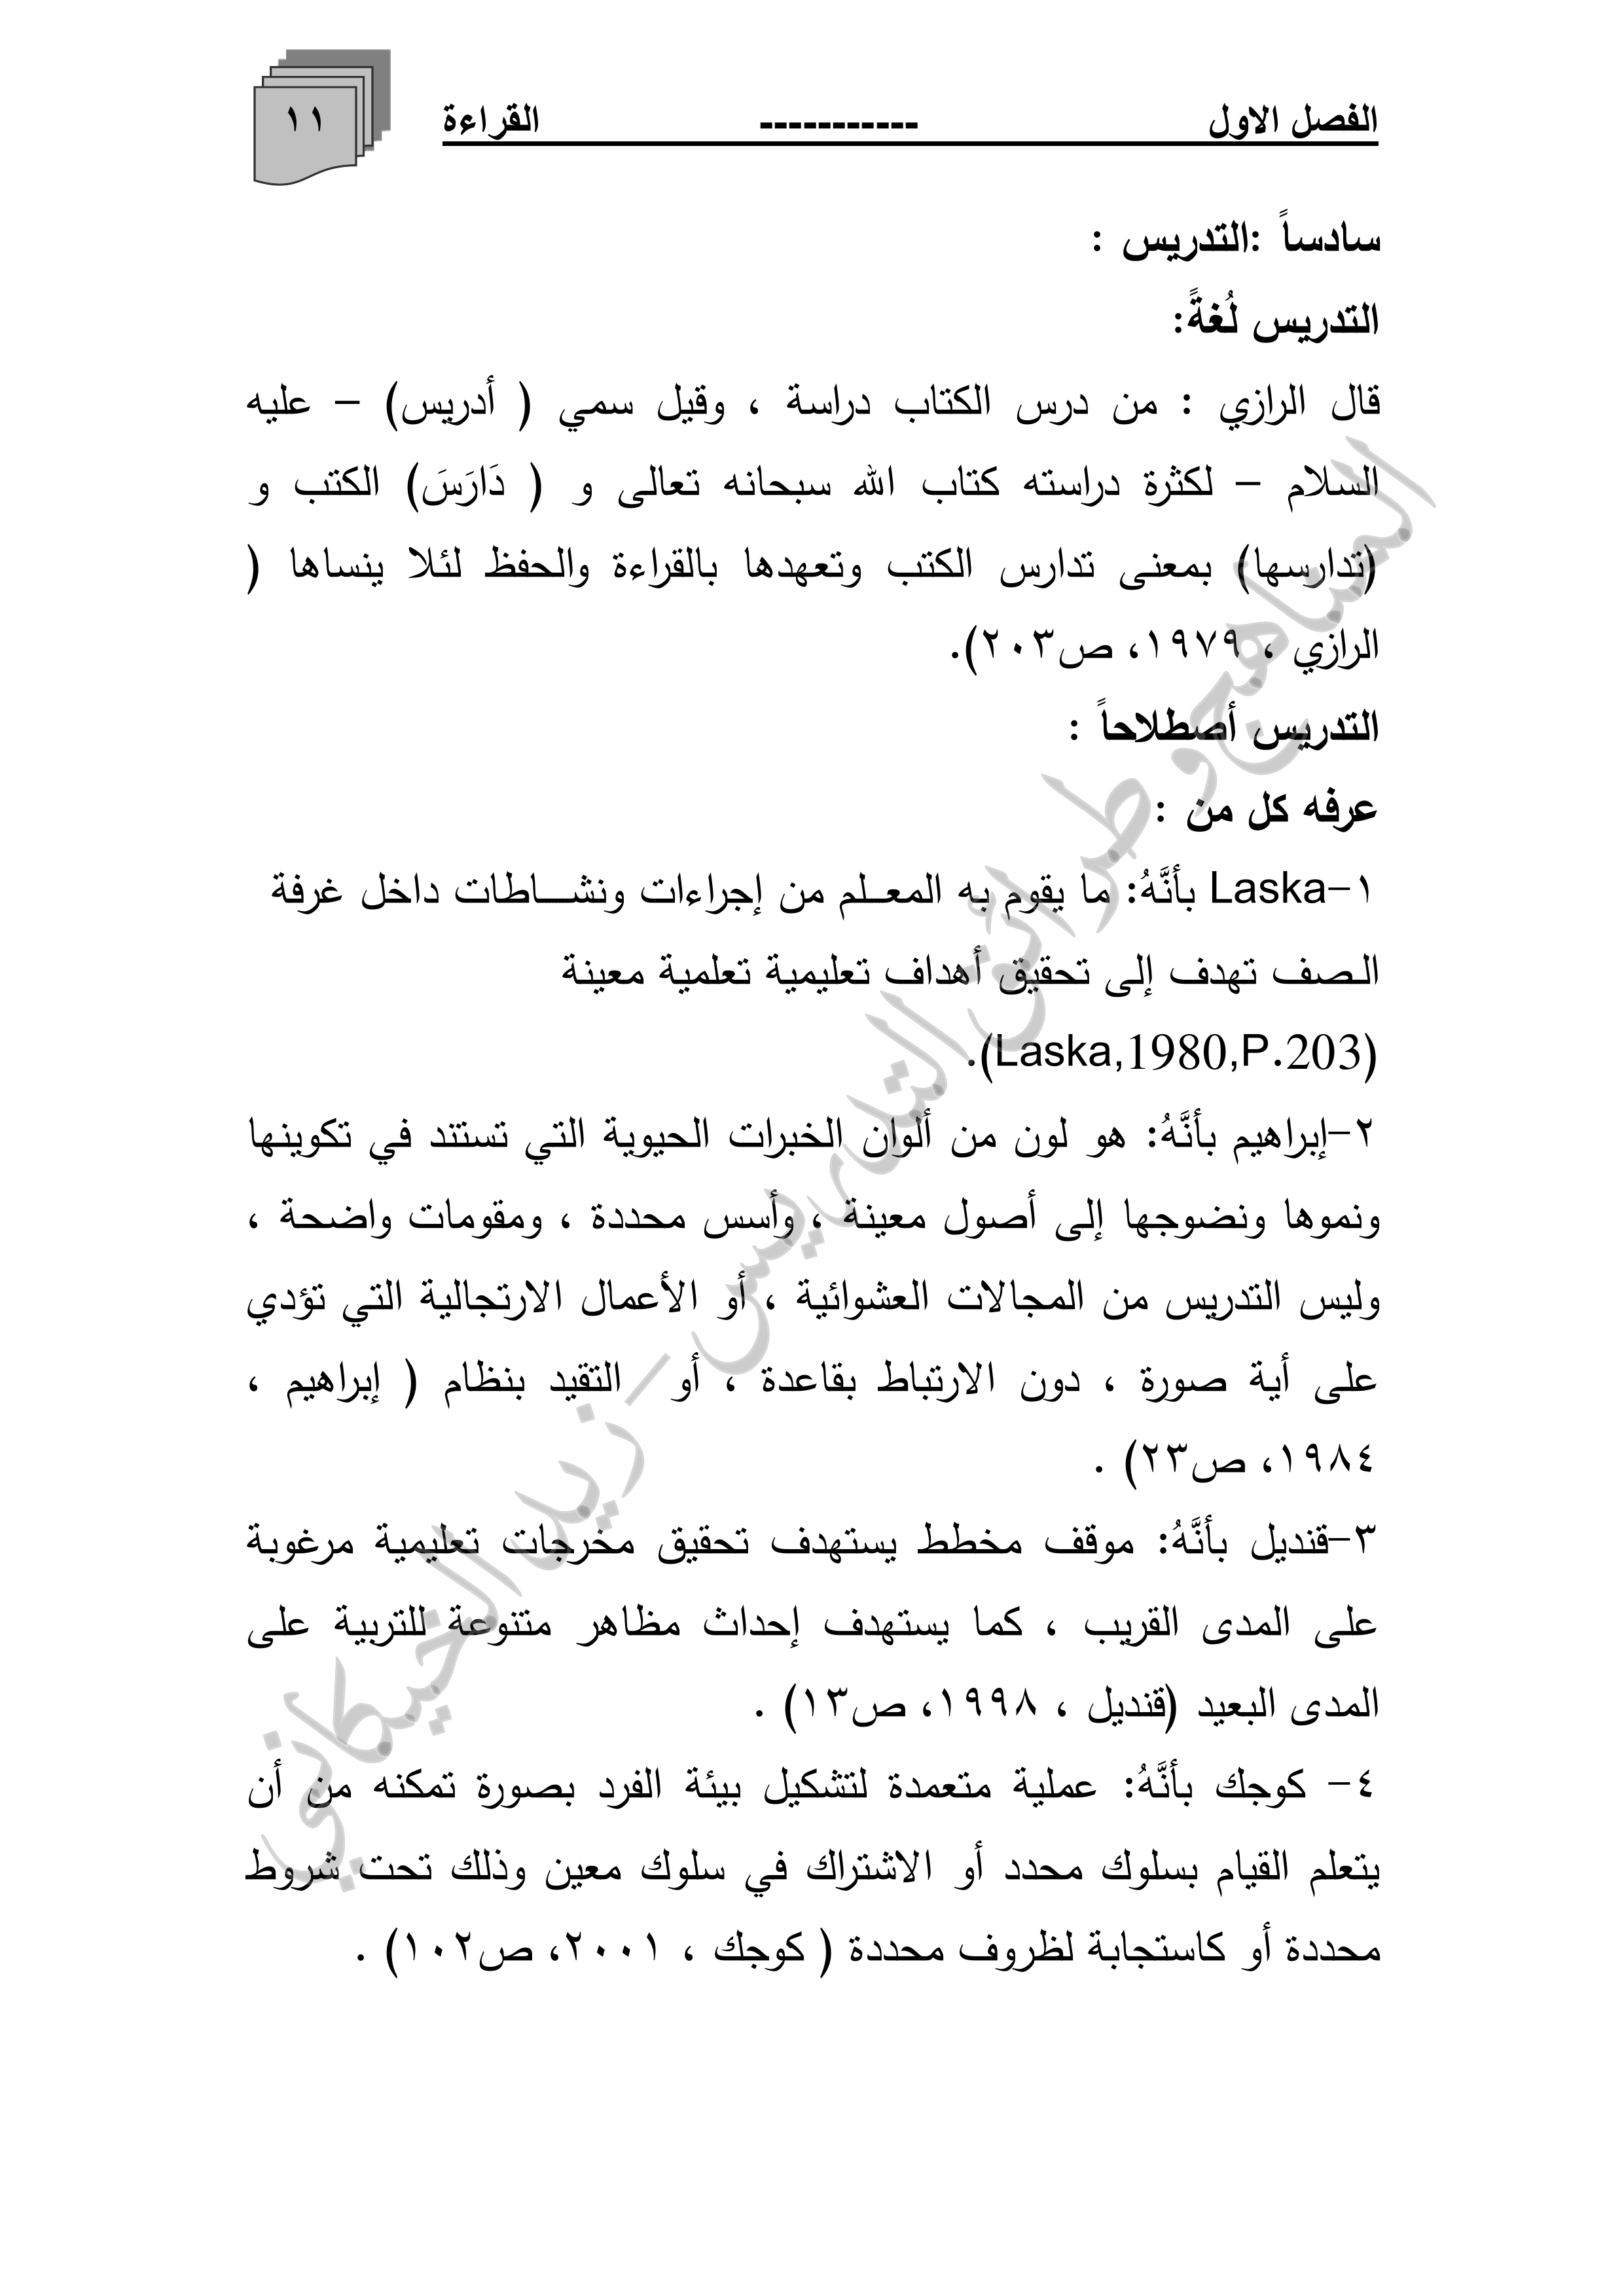 الفصل الاول ----------- القراءة
١١
سادساً :التدريس :
التدريس لُغةً:
قال الرازي : من درس الكتاب دراسة ، وقيل سمي ( أدريس) – عليه
السلام – لكثرة دراسته كتاب الله سبحانه تعالى و ( دَارَسَ) الكتب و
(تدارسها) بمعنى تدارس الكتب وتعهدها بالقراءة والحفظ لئلا ينساها (
الرازي ، ١٩٧٩، ص٢٠٣).
التدريس أصطلاحاً :
عرفه كل من :
١-Laska بأنَّهُ: ما يقوم به المعــلم من إجراءات ونشـــاطات داخل غرفة
الـصف تهدف إلى تحقيق أهداف تعليمية تعلمية معينة
(Laska,1980,P.203).
٢-إبراهيم بأنَّهُ: هو لون من ألوان الخبرات الحيوية التي تستند في تكوينها
ونموها ونضوجها إلى أصول معينة ، وأسس محددة ، ومقومات واضحة ،
وليس التدريس من المجالات العشوائية ، أو الأعمال الارتجالية التي تؤدي
على أية صورة ، دون الارتباط بقاعدة ، أو التقيد بنظام ( إبراهيم ،
١٩٨٤، ص٢٣) .
٣-قنديل بأنَّهُ: موقف مخطط يستهدف تحقيق مخرجات تعليمية مرغوبة
على المدى القريب ، كما يستهدف إحداث مظاهر متنوعة للتربية على
المدى البعيد (قنديل ، ١٩٩٨، ص١٣) .
٤- كوجك بأنَّهُ: عملية متعمدة لتشكيل بيئة الفرد بصورة تمكنه من أن
يتعلم القيام بسلوك محدد أو الاشتراك في سلوك معين وذلك تحت شروط
محددة أو كاستجابة لظروف محددة ( كوجك ، ٢٠٠١، ص١٠٢) .
المناهج وطرائق التدريس – زيد الخيكاني